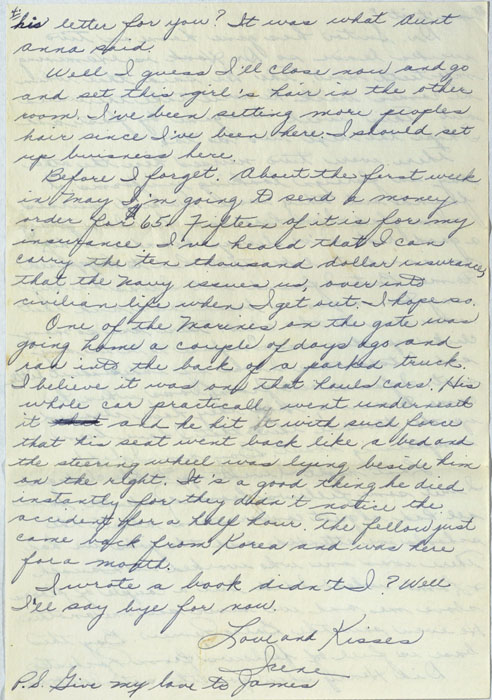 his letter for you? It was what Aunt
Anna said.
Well I guess I'll close now and go
and set this girl's hair in the other
room. I've been setting more peoples
hair since I've been here. I should set
up buisness here.
Before I forget. About the first week
in May I'm going to send a money
order for $65. Fifteen of it is for my
insurance. I've heard that I can
carry the ten thousand dollar insurance,
that the Navy issues us, over into
civilian life when I get out. I hope so.
One of the Marines on the gate was
going home a couple of days ago and
ran into the back of a parked truck.
I believe it was one that hauls cars. His
whole car practically went underneath
it and he hit it with such force
that his seat went back like a bed and
the steering wheel was lying beside him
on the right. It's a good thing he died
instantly for they didn't notice the
accident for a half hour. The fellow just
came back from Korea and was here
for a month.
I wrote a book didn't I? Well
I'll say bye for now.
Love and Kisses
Irene
P.S. Give my love to James